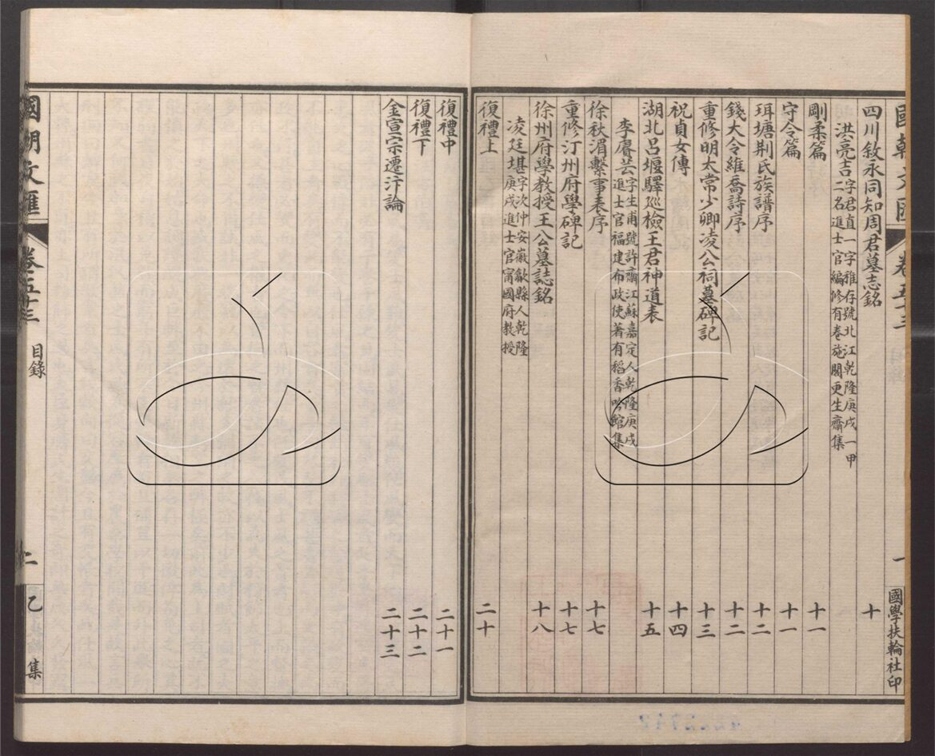 國朝文匯
卷五十三
一
國學扶輪社印
四川敘永同知周君墓志銘 十
洪亮吉 字君直一字稚存號北江乾隆庚戌一甲
二名進士官編修有卷施閣更生齋集
剛柔篇 十一
守令篇 十一
珥塘荆氏族譜序 十二
錢大令維喬詩序 十二
重修明太常少卿凌公祠墓碑記 十三
祝貞女傳 十四
湖北呂堰驛巡檢王君神道表 十五
李賡芸 字生甫號許齋江蘇嘉定人乾隆庚戌
進士官福建布政使著有稻香吟館集
徐秋湄繫事表序 十七
重修汀州府學碑記 十七
徐州府學教授王公墓誌銘 十八
凌廷堪 字次仲安徽歙縣人乾隆
庚戌進士官甯國府教授
復禮上 二十
復禮中 二十一
復禮下 二十二
金宣宗遷汴論 二十三
國朝文匯
卷五十三
目錄
二
乙集